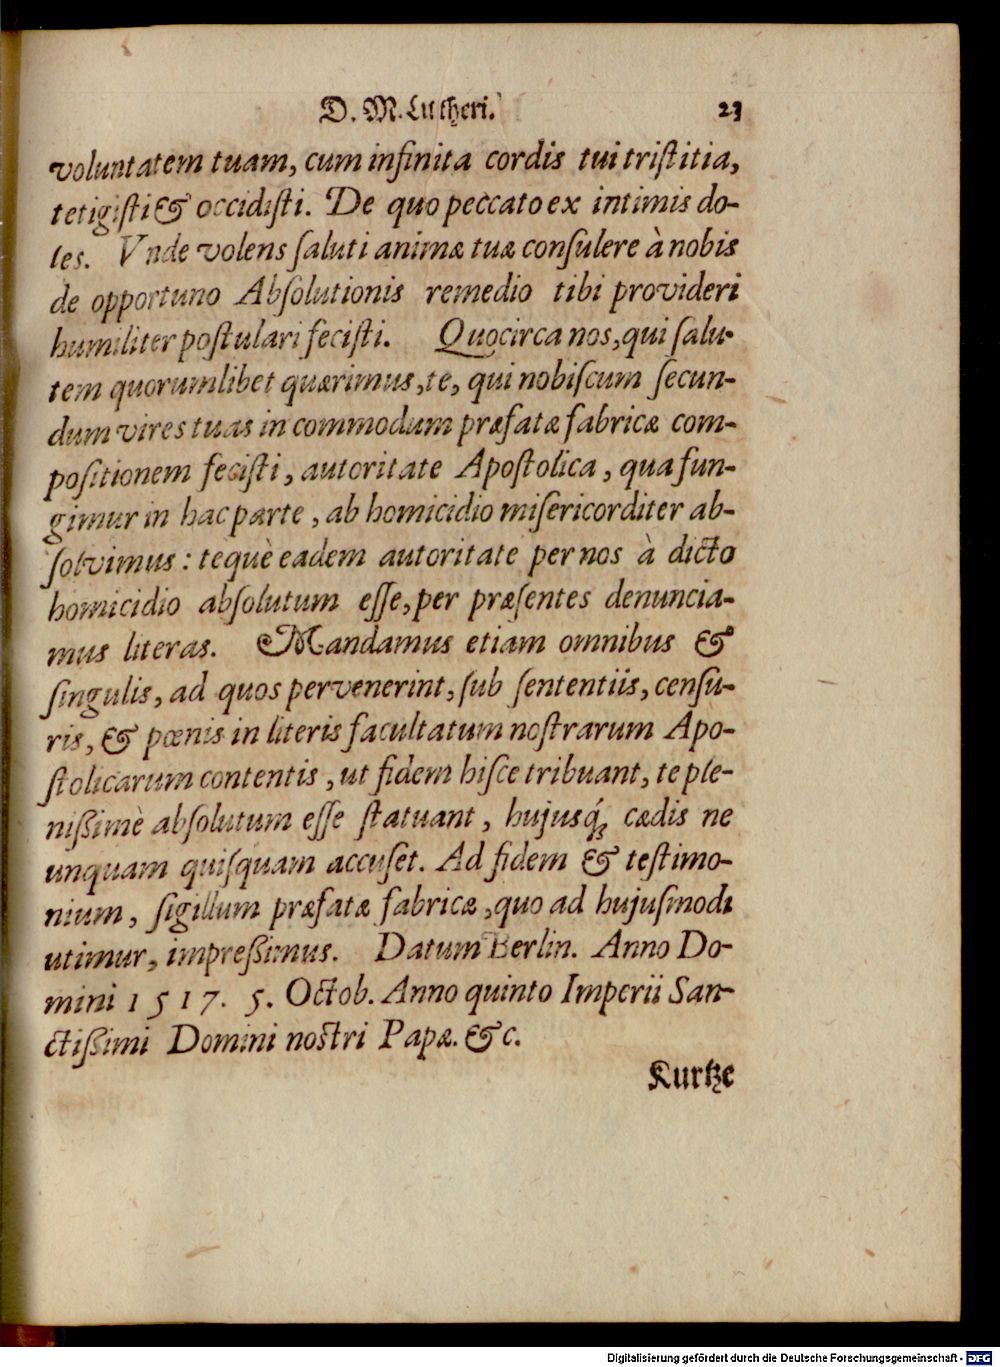 D. M. Lutheri. 23
voluntatem tuam, cum infinita cordis tui tristitia,
tetigisti & occidisti. De quo peccato ex intimis do-
les. Vnde volens saluti animæ tuæ consulere à nobis
de opportuno Absolutionis remedio tibi provideri
humiliter postulari fecisti. Quocirca nos, qui salu-
tem quorumlibet quærimus, te, qui nobiscum secun-
dum vires tuas in commodum præfatæ fabricæ com-
positionem fecisti, autoritate Apostolica, qua fun-
gimur in hac parte, ab homicidio misericorditer ab-
solvimus: tequè eadem autoritate per nos à dicto
homicidio absolutum esse, per præsentes denuncia-
mus literas. Mandamus etiam omnibus &
singulis, ad quos pervenerint, sub sententiis, censu-
ris, & pœnis in literis facultatum nostrarum Apo-
stolicarum contentis, ut fidem hisce tribuant, te ple-
nißimè absolutum esse statuant, hujusq́; cædis ne
unquam quisquam accuset. Ad fidem & testimo-
nium, sigillum præfatæ fabricæ, quo ad hujusmodi
utimur, impreßimus. Datum Berlin. Anno Do-
mini 1517. 5. Octob. Anno quinto Imperii San-
ctißimi Domini nostri Papæ. &c.
Kurtze
Digitalisierung gefördert durch die Deutsche Forschungsgemeinschaft - DFG